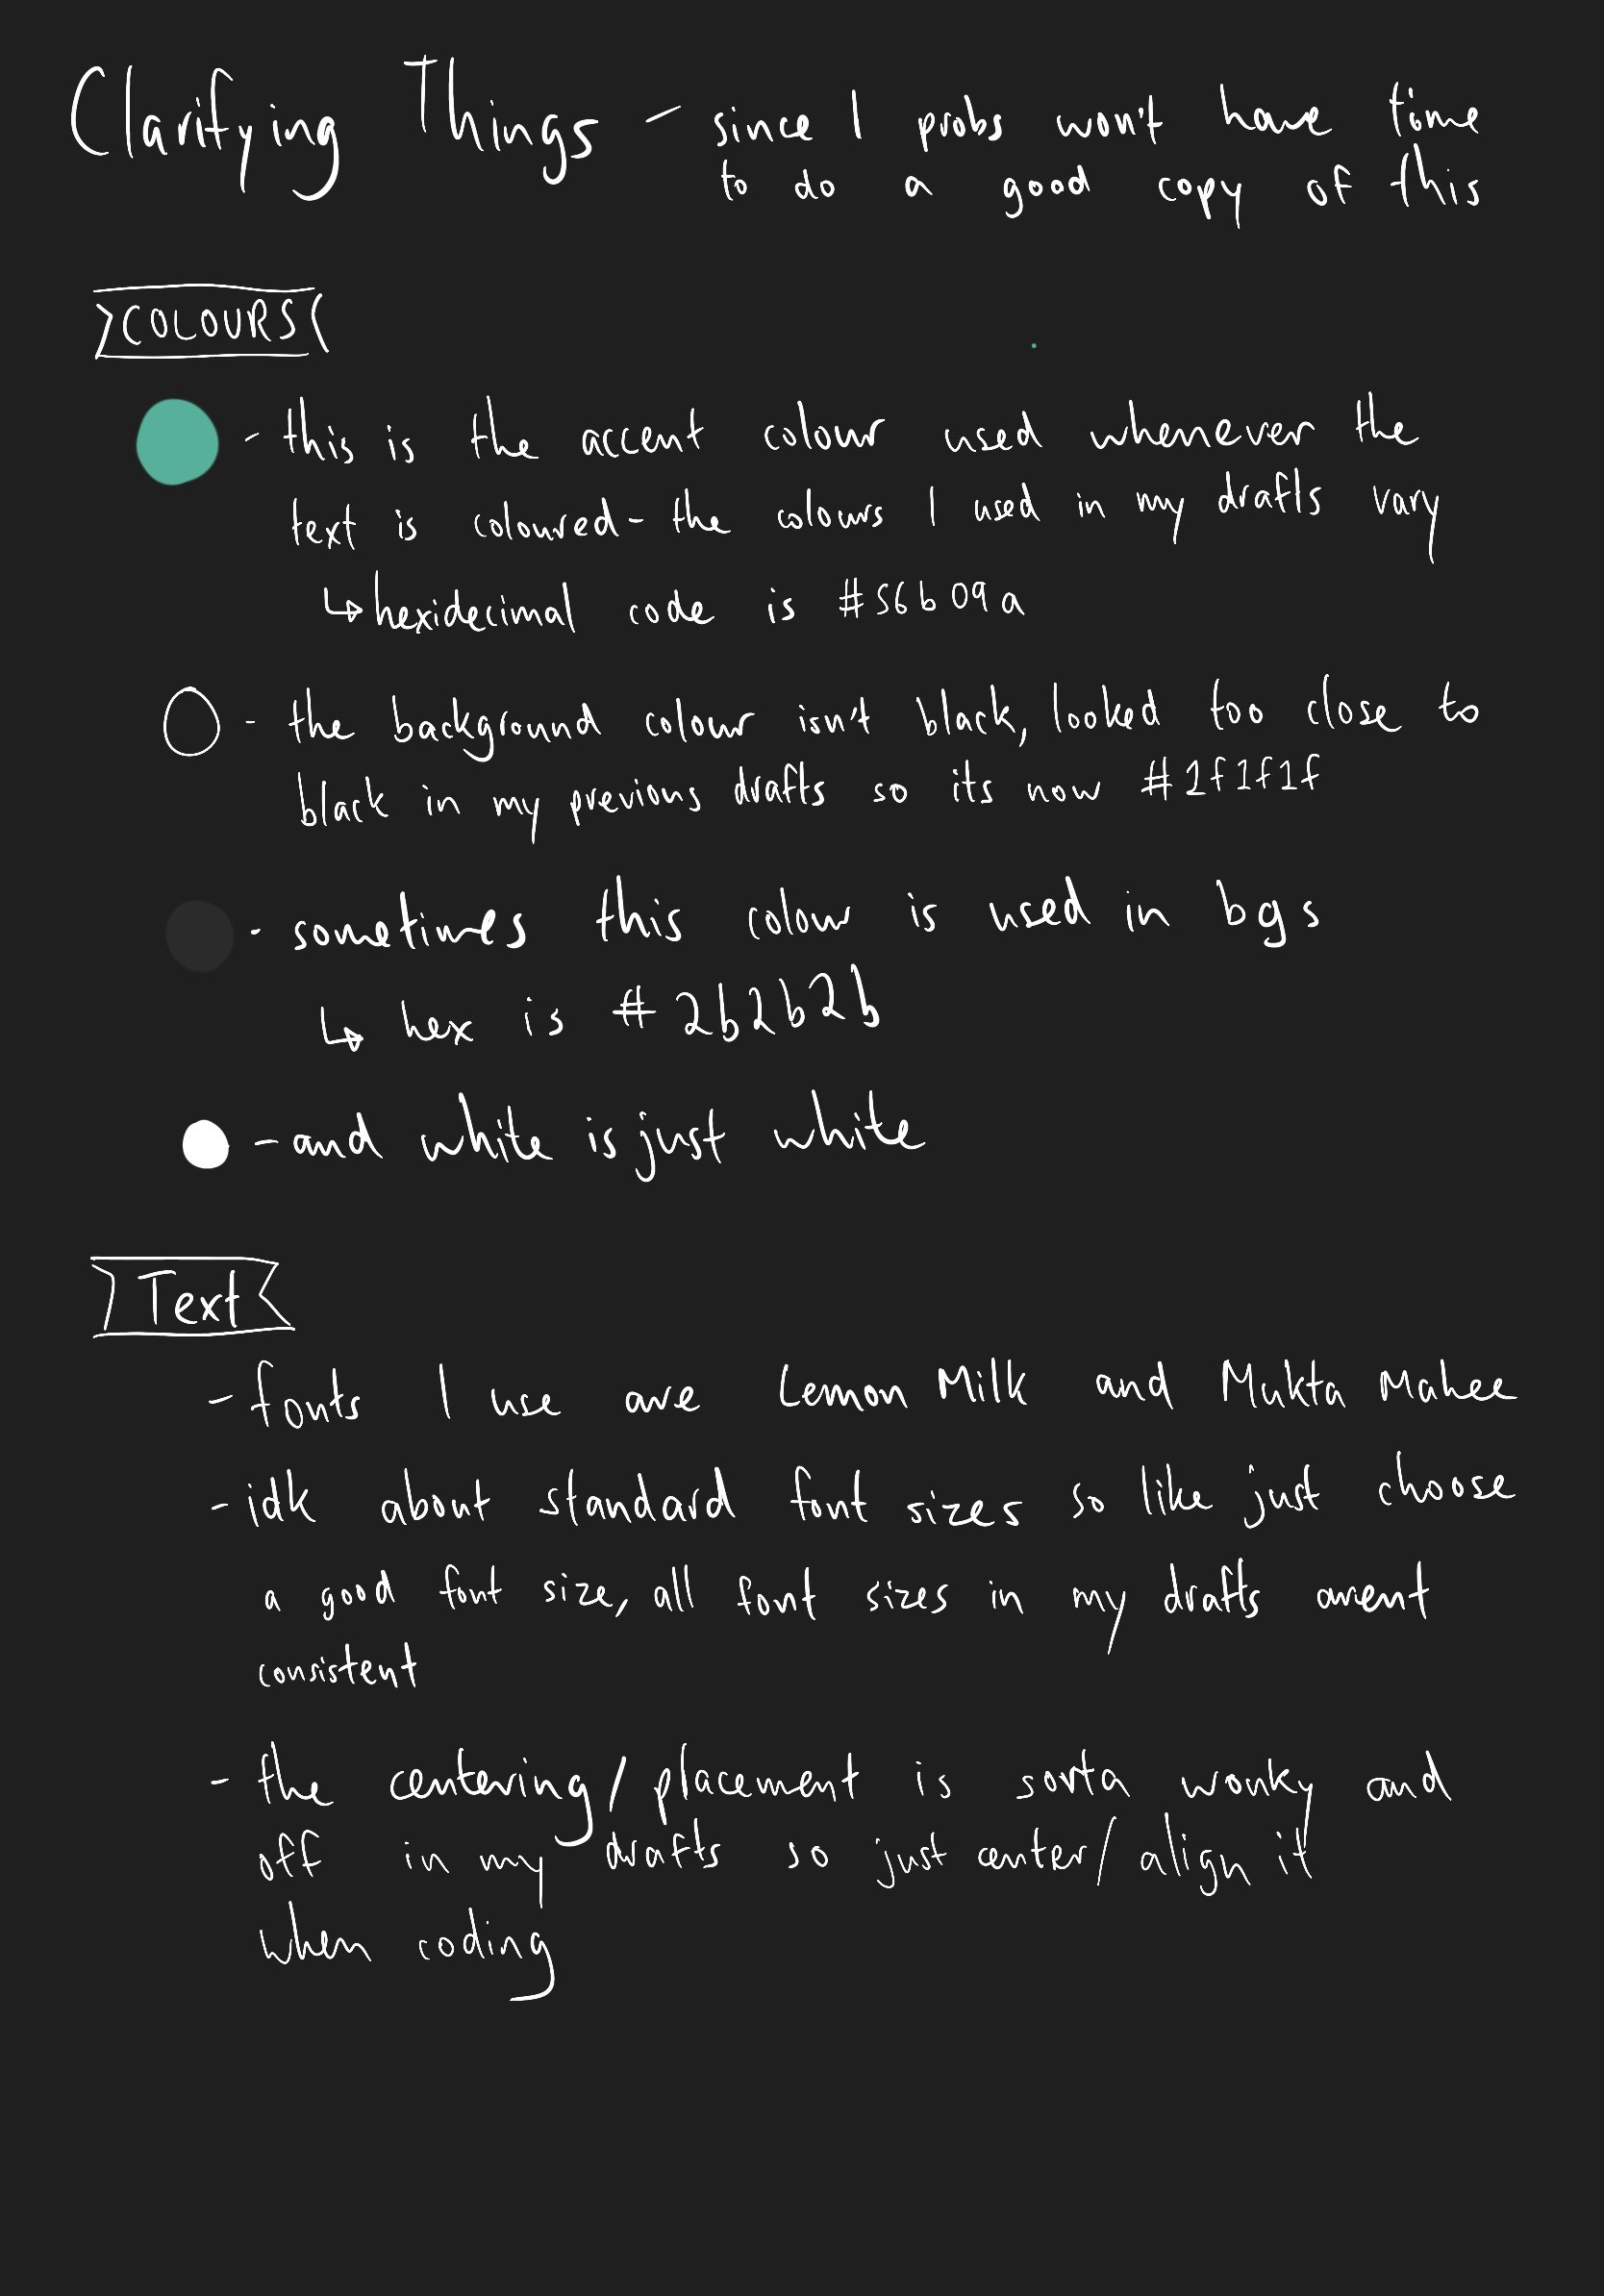 Clarifying Things - since I probs won't have time
to do a good copy of this
COLOURS
- this is the accent colour used whenever the
text is coloured - the colours I used in my drafts vary
↳ hexidecimal code is #56b09a
- the background colour isn't black, looked too close to
black in my previous drafts so its now #1f1f1f
- sometimes this colour is used in bgs
↳ hex is #2b2b2b
- and white is just white
Text
- fonts I use are Lemon Milk and Mukta Mahee
- idk about standard font sizes so like just choose
a good font size, all font sizes in my drafts arent
consistent
- the centering/placement is sorta wonky and
off in my drafts so just center/align it
when coding